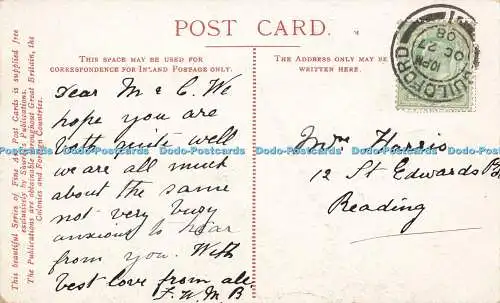 POST CARD.
THIS SPACE MAY BE USED FOR
CORRESPONDENCE FOR INLAND POSTAGE ONLY.
THE ADDRESS ONLY MAY BE
WRITTEN HERE.
This beautiful Series of Fine Art Post Cards is supplied free
exclusively by Shurey's Publications.
The Publications are obtainable throughout Great Britain, the
Colonies and Foreign Countries.
Dear M & C. We
hope you are
both quite well
we are all much
about the same
not very busy
anxious to hear
from you. With
best love from all
F. W. M. B.
Mrs Harris
12 St Edwards Rd
Reading
GUILDFORD
10 PM
OC 27
08
W-Postcards